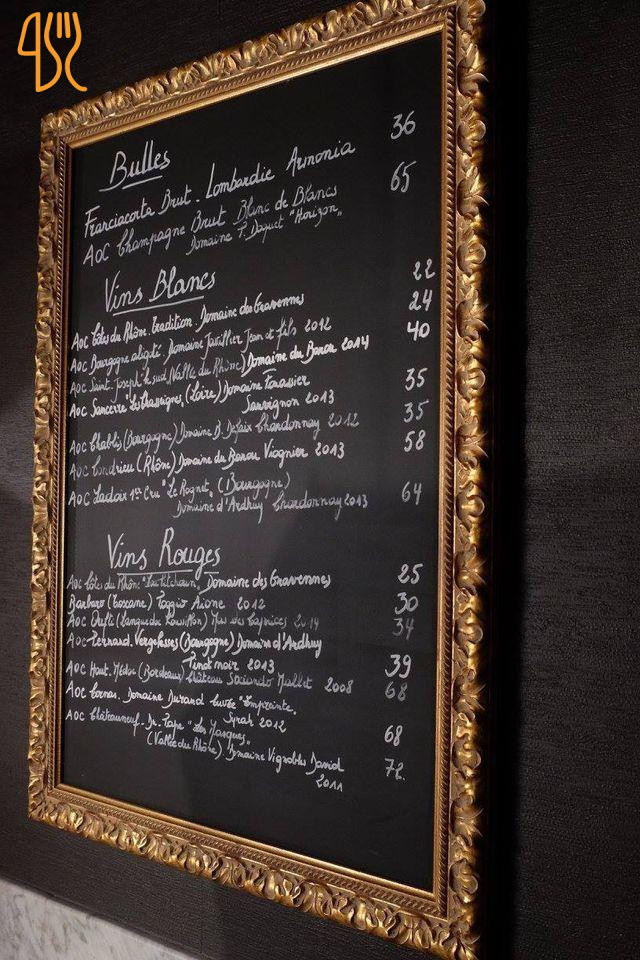 Bulles
Franciacorta Brut. Lombardie Armonia 36
AOC Champagne Brut Blanc de Blancs 65
Domaine P. Doquet "Horizon"
Vins Blancs
AOC Côtes du Rhône. tradition. Domaine des Gravennes 22
AOC Bourgogne aligoté. Domaine Javillier Jean et fils 2012 24
AOC Saint-Joseph (le sud, Vallée du Rhône) Domaine du 2014 40
AOC Sancerre "Les Chasseignes" (Loire) Domaine Fouassier 35
Sauvignon 2013
AOC Chablis (Bourgogne) Domaine B. Defaix Chardonnay 2012 35
AOC Condrieu (Rhône) Domaine du Viognier 2013 58
AOC Ladoix 1er Cru "Le Rognet" (Bourgogne)
Domaine d'Ardhuy Chardonnay 2013 64
Vins Rouges
AOC Côtes du Rhône Domaine des Gravennes 25
(Toscane) Poggio 2012 30
AOC (Languedoc Roussillon) Mas des Caprices 2014 34
AOC Pernand. Vergelesses (Bourgogne) Domaine d'Ardhuy
Pinot noir 2013 39
AOC Haut. Médoc (Bordeaux) Château Sociando Mallet 2008 68
AOC Cornas. Domaine Durand Cuvée "Empreinte"
Syrah 2012 68
AOC Châteauneuf-Du-Pape "Les
(Vallée du Rhône) Domaine Vignobles David 72
2011